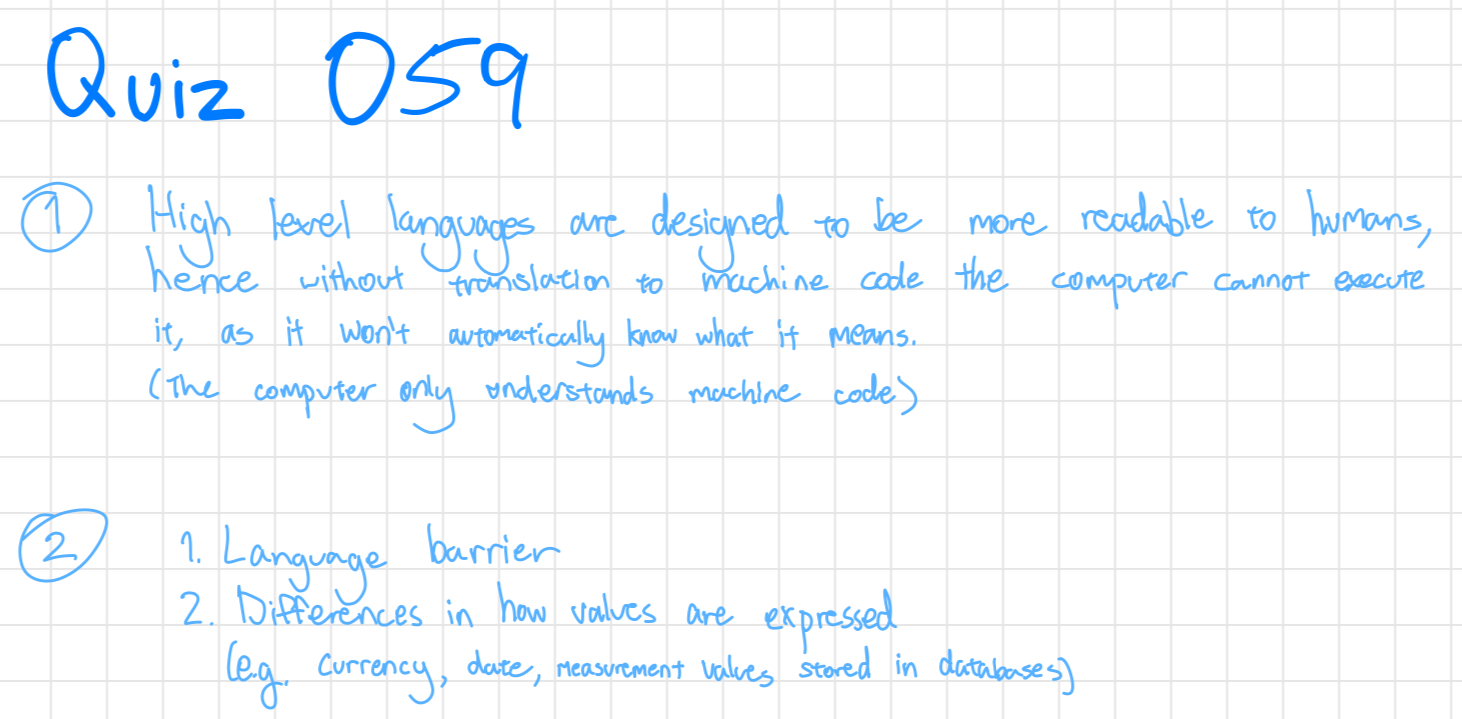 Quiz 059
1 High level languages are designed to be more readable to humans,
hence without translation to machine code the computer cannot execute
it, as it won't automatically know what it means.
(The computer only understands machine code)
2 1. Language barrier
2. Differences in how values are expressed
(e.g. currency, date, measurement values stored in databases)